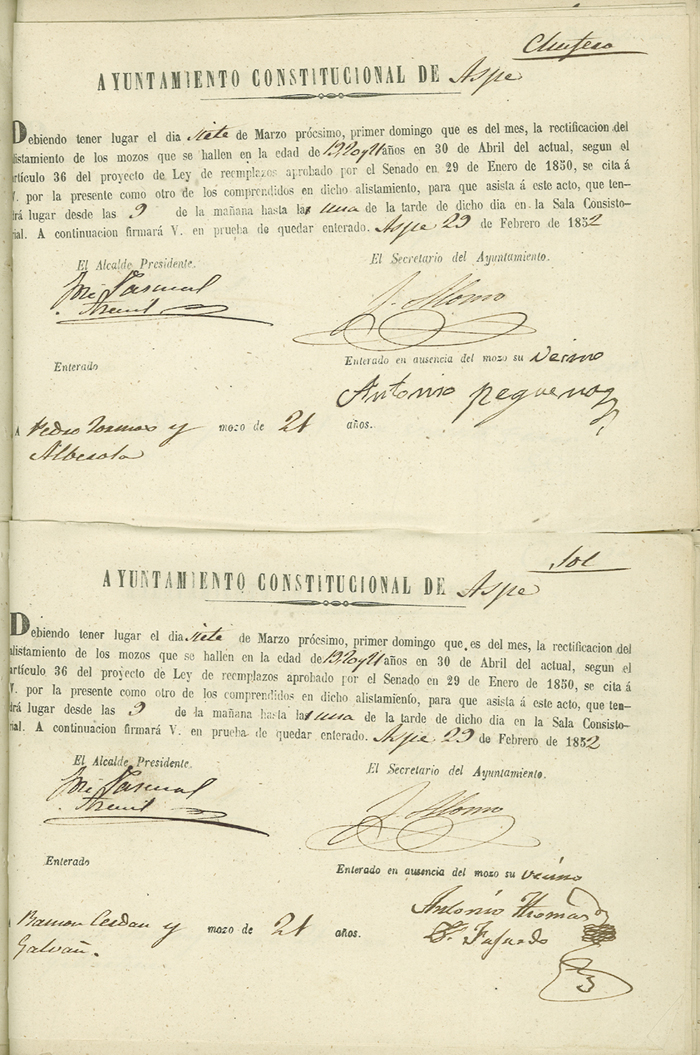 AYUNTAMIENTO CONSTITUCIONAL DE Aspe
Debiendo tener lugar el dia siete de Marzo prócsimo, primer domingo que es del mes, la rectificacion del
alistamiento de los mozos que se hallen en la edad de años en 30 de Abril del actual, segun el
artículo 36 del proyecto de Ley de reemplazos aprobado por el Senado en 29 de Enero de 1850, se cita á
V. por la presente como otro de los comprendidos en dicho alistamiento, para que asista á este acto, que ten-
drá lugar desde las 9 de la mañana hasta las una de la tarde de dicho dia en la Sala Consisto-
rial. A continuacion firmará V. en prueba de quedar enterado. Aspe 29 de Febrero de 1852
El Alcalde Presidente. El Secretario del Ayuntamiento.
José Pascual
Enterado Enterado en ausencia del mozo su Vecino
Antonio pequeno
A Pedro y mozo de 21 años.
Sol
AYUNTAMIENTO CONSTITUCIONAL DE Aspe
Debiendo tener lugar el dia siete de Marzo prócsimo, primer domingo que es del mes, la rectificacion del
alistamiento de los mozos que se hallen en la edad de años en 30 de Abril del actual, segun el
artículo 36 del proyecto de Ley de reemplazos aprobado por el Senado en 29 de Enero de 1850, se cita á
V. por la presente como otro de los comprendidos en dicho alistamiento, para que asista á este acto, que ten-
drá lugar desde las 9 de la mañana hasta las una de la tarde de dicho dia en la Sala Consisto-
rial. A continuacion firmará V. en prueba de quedar enterado. Aspe 29 de Febrero de 1852
El Alcalde Presidente. El Secretario del Ayuntamiento.
José Pascual
Enterado Enterado en ausencia del mozo su vecino
Antonio Thomas
Ramon Cerdan y mozo de 21 años.
Galvañ.